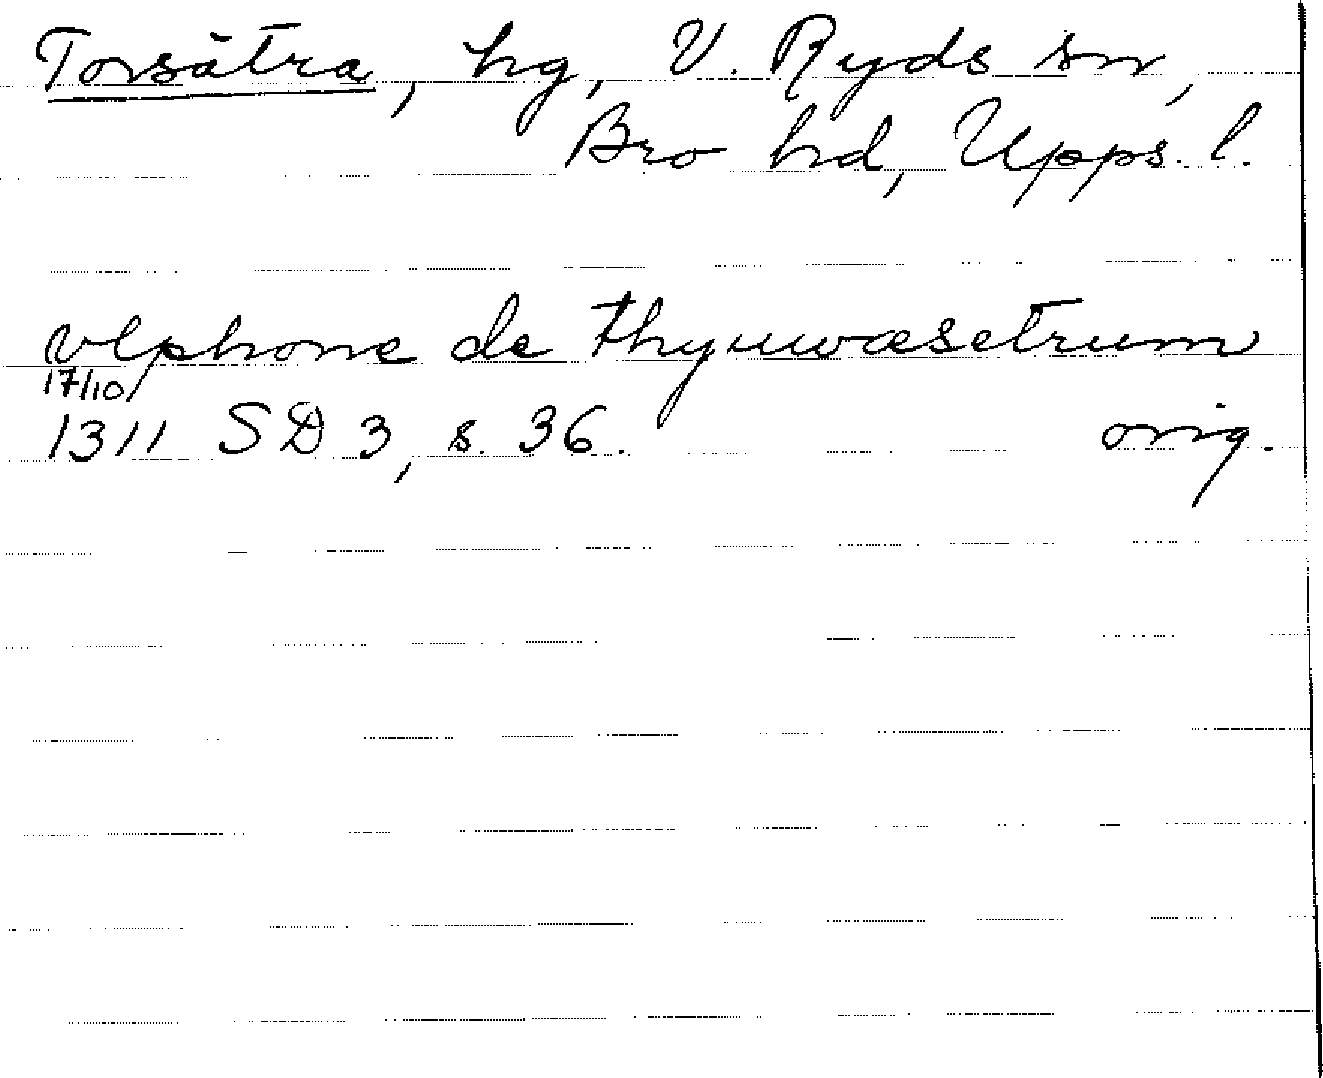 Torsätra, hg, V. Ryds sn,
Bro hd, Upps. l.
vlphone de thyuuæsetrum
17/10
1311 SD 3, s. 36. orig.